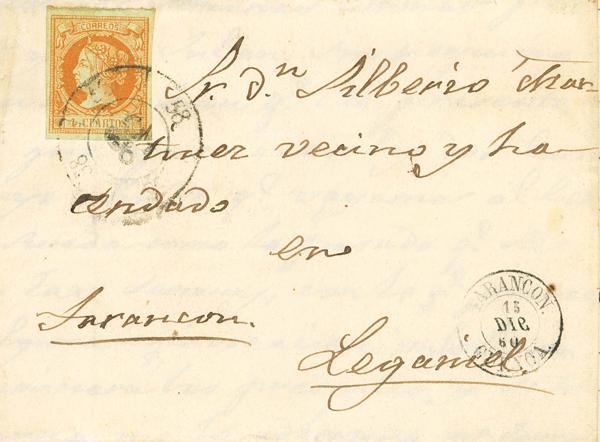 CORREOS
4 CUARTOS
58
58
Sr. dn Silberio Mar
tinez vecino y ha
sendado
en
Tarancon.
Leganiel
TARANCON.
15
DIC
60
CUENCA.